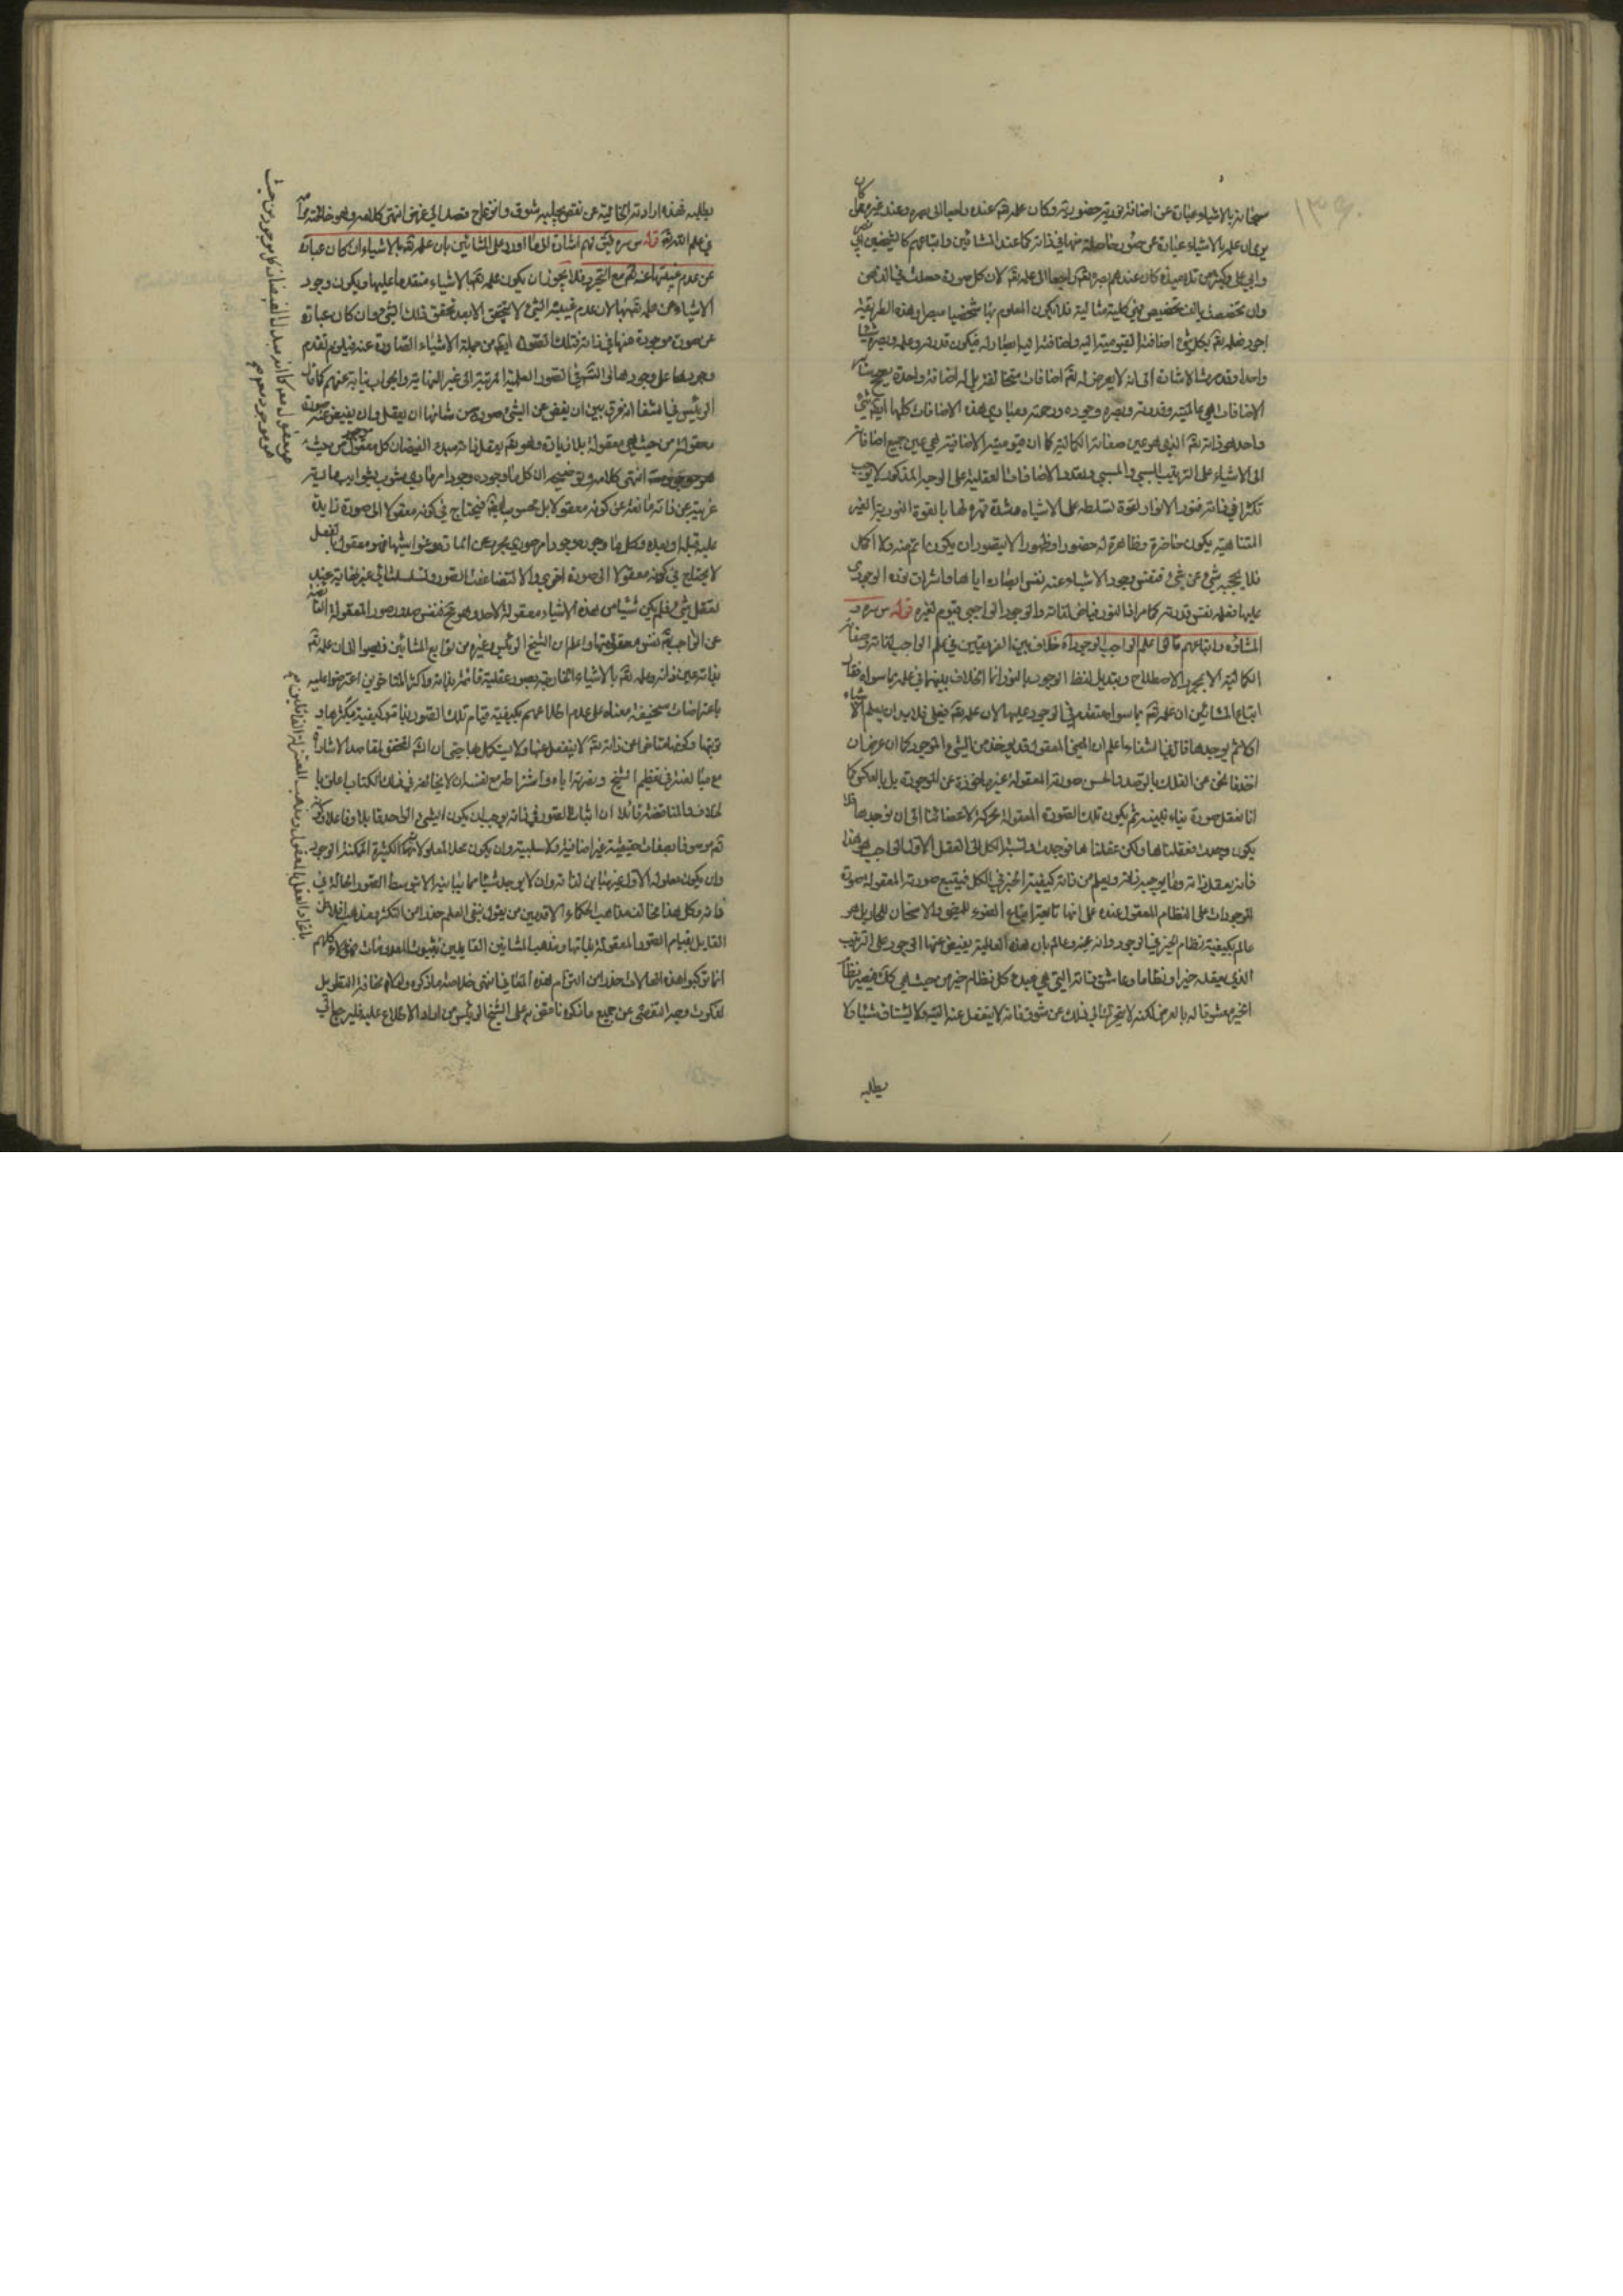 سبحانه بالاشياء عبارة عن اضافة نورية حضورية وكان علمه تعالى عنده راجعا الى بصره وعند غيره ممن كان
يرى ان علمه بالاشياء عبارة عن صور حاصلة منها في ذاته كما عند المشائين واتباعهم كالشيخين ابي نصر
وابي علي وكثير من تلاميذه كان عندهم بصره تعالى راجعا الى علمه تعالى لان كل صورة حصلت في الذهن
وان تخصصت بالف تخصيص فهي كلية مثالية فلا يكون المعلوم بها شخصيا مبصرا وهذه الطريقة
اجود فعلمه تعالى بكل شيء اضافته القيومية اليه واضافته اليها
واحدا وقد مرت الاشارة الى انه لا يعرض له تعالى اضافات متخالفة بل له اضافة واحدة يصحح
الاضافات هي عالميته وقدرته وبصره وجوده ورحمته ومبادي هذه الاضافات كلها ايضا شيء
واحد هو ذاته تعالى الذي هو عين صفاته الكمالية كما ان قيوميته الاضافية هي عين جميع اضافاته
الى الاشياء على الترتيب السببي والمسببي وتعدد الاضافات العقلية على الوجه المذكور لا يوجب
تكثرا في ذاته فنور الانوار لقوة تسلطه على الاشياء وشدة قهره لها بالقوة النورية الغير
المتناهية يكون حاضرة وظاهرة له حضورا وظهورا لا يتصور ان يكون اتم منه ولا اكمل
فلا يحجبه شيء عن شيء فنفس وجود الاشياء عنه نفس ابصاره اياها واشراق نوره الوجودي
عليها فعلمه نفس قدرته كما مر اذ النور فياض لذاته والوجود الواجبي يقوم لغيره قوله س سره و
المشاؤن واتباعهم قالوا علم الواجب الوجود اه خلاف بين الفريقين في علم الواجب لذاته وصفاته
الكمالية الا بمجرد الاصطلاح وتبديل لفظ الوجود بالنور انما الخلاف بينهما في علمه بما سواه فقال
اتباع المشائين ان علمه تعالى بما سواه متقدم في الوجود عليها لان علمه تعالى فعلي فلا بد ان يعلم الاشياء
اولا ثم يوجدها قال في الشفاء واعلم ان المعنى المعقول قد يوخذ من الشيء الموجود كما ان عرض ان
اخذنا نحن عن الفلك بالرصد والحس صورته المعقولة وقد يكون الصورة المعقولة غير ماخوذة عن الموجودة بل بالعكس كما
انا نعقل صورة بنائية ثم يكون تلك الصورة المعقولة محركة لاعضائنا الى ان نوجدها فلا
يكون وجدت فعقلناها ولكن عقلناها فوجدت ونسبة الكل الى العقل الاول الواجب هو هذا
فانه يعقل ذاته وما يوجبه ذاته ويعلم من ذاته كيفية الخير في الكل فيتبع صورته المعقولة صورة
الموجودات على النظام المعقول عنده على انها تابعة اتباع الضوء للمضيء والاسخان للحار بل هو
عالم بكيفية نظام الخير في الوجود وانه عنه وعالم بان هذه العالمية يفيض عنها الوجود على الترتيب
الذي يعقله خيرا ونظاما وعاشق ذاته التي هي مبدء كل نظام خير من حيث هي كذلك فيصير نظام
الخير معشوقا له بالعرض لكنه لا يتحرك الى ذلك عن شوق فانه لا ينفعل عنه البتة ولا يشتاق شيئا ولا
يطلبه
يطلبه فهذه ارادته الخالية عن نقص يجلبه شوق وانزعاج قصد الى غرض انتهى كلامه وهو خلاصة مرامه
في علم الله تعالى قوله س سره فيق لهم اشارة الى ما اورد على المشائين بان علمه تعالى بالاشياء ان كان عبارة
عن عدم غيبتها عنه تعالى مع التجرد فلا يجوز ان يكون علمه تعالى بالاشياء متقدما عليها ويكون وجود
الاشياء عن علمه تعالى بها لان عدم غيبة الشيء لا يتحقق الا بعد تحقق ذلك الشيء وان كان عبارة
عن صورة موجودة منها في ذاته فتلك الصورة ايضا من جملة الاشياء الصادرة عنه فيلزم تقدم
وجودها على وجودها او التسلسل في الصور العلمية المرتبة الى غير النهاية والجواب نيابة عنهم كما قال
الرئيس في الشفا انه فرق بين ان يفيض عن الشيء صورة من شانها ان يعقل وان يفيض عنه صورة
معقولة من حيث هي معقولة بلا زيادة وهو تعالى يعقل ذاته مبدء الفيضان كل معقول من حيث
هو موجود انتهى كلامه وتوضيحه ان كل ما وجوده وجود امر مادي مشوب بشوايب مادية
غريبة عن ذاته مانعة عن كونه معقولا بل محسوسا ايضا فيحتاج في كونه معقولا الى صورة زايدة
عليه قبله او بعده وكل ما وجوده وجود امر صوري مجرد عن المادة وغواشيها فهو معقول بالفعل
لا يحتاج في كونه معقولا الى صورة اخرى والا لتضاعفت الصور وتسلسلت الى غير نهاية عند
تعقل شيء فلم يكن شيئا من هذه الاشياء معقولة لاحد وهو مح فنفس صدور صور المعقولة الفايضة
عن الواجب تعالى نفس معقوليتها واعلم ان الشيخ الرئيس وغيره من توابع المشائين ذهبوا الى ان علمه تعالى
بذاته عين ذاته وعلمه تعالى بالاشياء الخارجية بصور عقلية قائمة بذاته واكثر المتاخرين اعترضوا عليه
باعتراضات سخيفة مبناه على عدم اطلاعهم بكيفية قيام تلك الصور بذاته وكيفية تكثرها و
ترتبها وكونها متاخرا عن ذاته تعالى لا ينفعل عنها ولا يستكمل بها حتى ان المحقق لمقاصد الاشارات
مع مبالغته في تعظيم الشيخ ونصرته اياه واشتراطه مع نفسه ان لا يخالفه في ذلك الكتاب اعلن با
لخلاف والمناقضة قائلا ان اثبات الصور في ذاته يوجب ان يكون الشيء الواحد قابلا وفاعلا وكونه
تعالى موصوفا بصفات حقيقية غير اضافية ولا سلبية وان يكون محلا لمعلولاته الكثيرة الممكنة الوجود
وان يكون معلوله الاول غير مباين لذاته وان لا يوجد شيئا مما يباينه الا بتوسط الصور الحالة في
ذاته وكل هذا مخالف مذاهب الحكماء الاقدمين من يقول بنفي العلم حذرا من التكثر ومذهب افلاطن
القايل بقيام الصور المعقولة بذاتها ومذهب المشائين القايلين بثبوت المعدومات فهؤلاء كلهم
انما ارتكبوا هذه المحالات حذرا من التزام هذه المعاني انتهى خلاصة ما ذكره ولولا مخافة التطويل
لذكرت وجه التفصي عن جميع ما ذكره نا على الشيخ الرئيس من اراد الاطلاع عليه فليرجع الى
هو معقول معه كما انه مبدء الفيضان كل موجود من حيث
هو موجود معه
باتحاد العاقل بالمعقول ومذهب المعتزلة القائلين